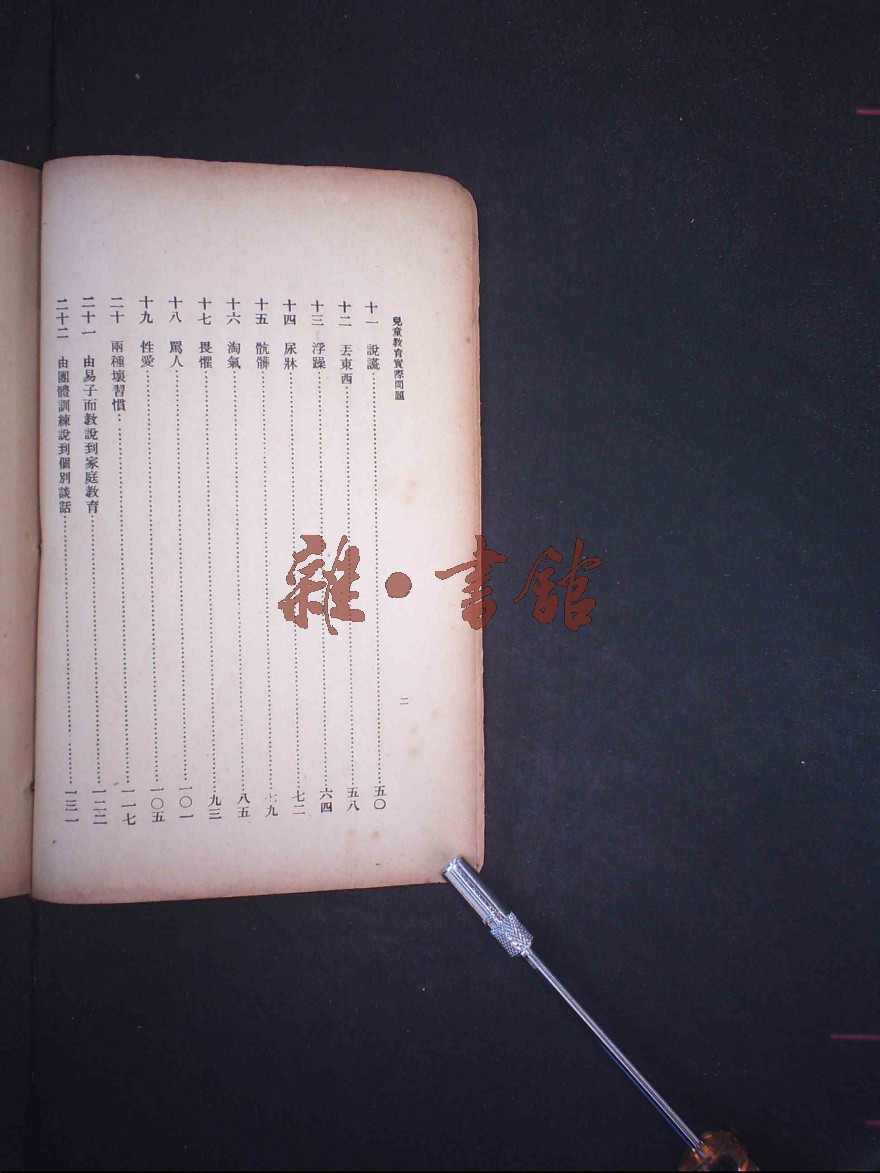 兒童教育實際問題
二
十一 說謊 五〇
十二 丟東西 五八
十三 浮躁 六四
十四 尿牀 七二
十五 骯髒 七九
十六 淘氣 八五
十七 畏懼 九三
十八 罵人 一〇一
十九 性愛 一〇五
二十 兩種壞習慣 一一七
二十一 由易子而教說到家庭教育 一二二
二十二 由團體訓練說到個別談話 一三一
雜·書館